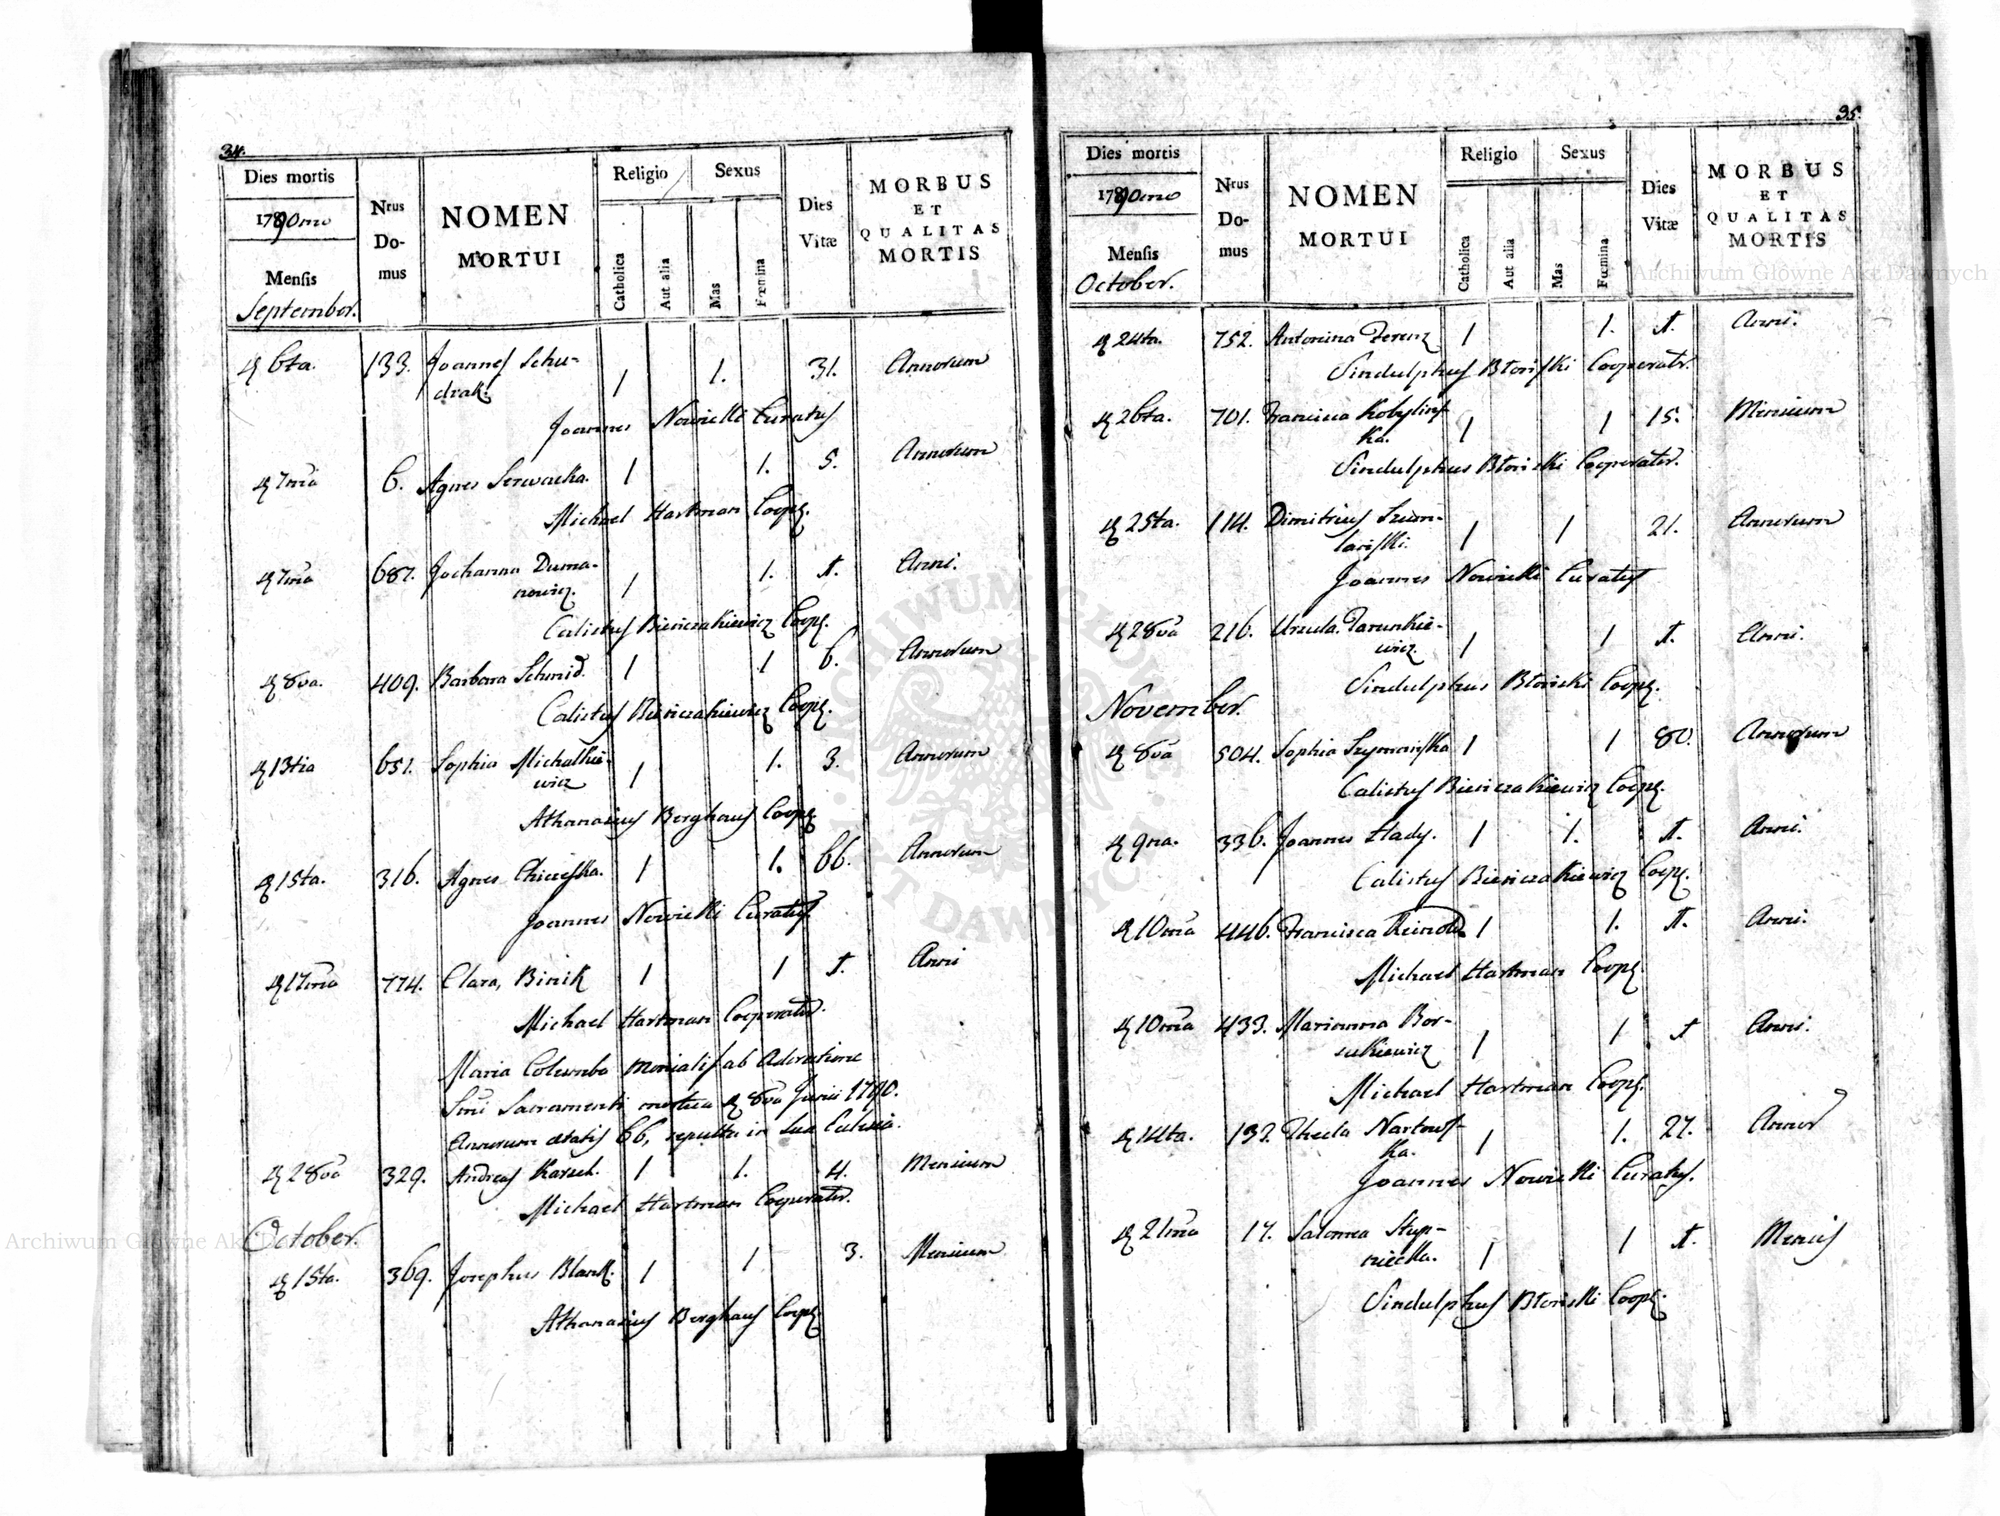 34.
Dies mortis
1790mo
Mensis
September.
Nrus Domus
NOMEN
MORTUI
Religio
Catholica
Aut alia
Sexus
Mas
Fœmina
Dies
Vitæ
MORBUS
ET
QUALITAS
MORTIS
6ta. 133. Joannes Schu-
drak. 1 1. 31. Annorum
Joannes Nowicki Curatus
7mā 6. Agnes Serwacka. 1 1. 5. Annorum
Michael Hartman Coop.
7mā 687. Johanna Duma-
nowicz. 1 1. 1. Anni.
Calistus Bieniczakiewicz Coop.
8va. 409. Barbara Schmid. 1 1 6. Annorum
Calistus Bieniczakiewicz Coop.
13tia 651. Sophia Michalkie-
wicz 1 1. 3. Annorum
Athanasius Berghaus Coop.
15ta. 316. Agnes 1 1. 66. Annorum
Joannes Nowicki Curatus
17mā 774. Clara Binik 1 1 1. Anni
Michael Hartman Cooperator.
Maria Columba monialis ab Adoratione
Smi Sacramenti mortua 8va Junii 1790.
Annorum ætatis 66, sepulta in sua Eclesia.
28vā 329. Andreas Karsch. 1 1. 4. Mensium
Michael Hartman Cooperator.
October.
15ta. 369. Josephus Blank. 1 1 3. Mensium
Athanasius Berghaus Coop
35.
Dies mortis
1790mo
Mensis
October.
Nrus Domus
NOMEN
MORTUI
Religio
Catholica
Aut alia
Sexus
Mas
Fœmina
Dies
Vitæ
MORBUS
ET
QUALITAS
MORTIS
24ta. 752. Antonina Ferenz 1 1. 1. Anni.
Sindulphus Cooperatr.
26ta. 701. Francisca Kobylins-
ka. 1 1 15. Mensium
Sindulphus Cooperator.
25ta. 114. Dimitrius Szum-
lariski. 1 1 21. Annorum
Joannes Nowicki Curatus
28vā 216. Ursula Tarunkie-
wicz. 1 1 1. Anni.
Sindulphus Coop.
November.
8vā 504. Sophia Szymańska 1 1 80. Annorum
Calistus Bieniczakiewicz Coop.
9na. 336. Joannes Hady. 1 1. 1. Anni.
Calistus Bieniczakiewicz Coop.
10mā 446. Francisca Reinold. 1 1. 1. Anni.
Michael Hartman Coop.
10mā 433. Marianna Bor-
sukiewicz 1 1 1 Anni.
Michael Hartman Coop.
14ta. 132. Thecla Nartows-
ka. 1 1. 27. Annor
Joannes Nowicki Curatus.
21mā 17. Salomea Stup-
niecka. 1 1 1. Mensis
Sindulphus Coop.
Archiwum Główne Akt Dawnych
Archiwum Główne Akt Dawnych
ARCHIWUM GŁÓWNE AKT DAWNYCH